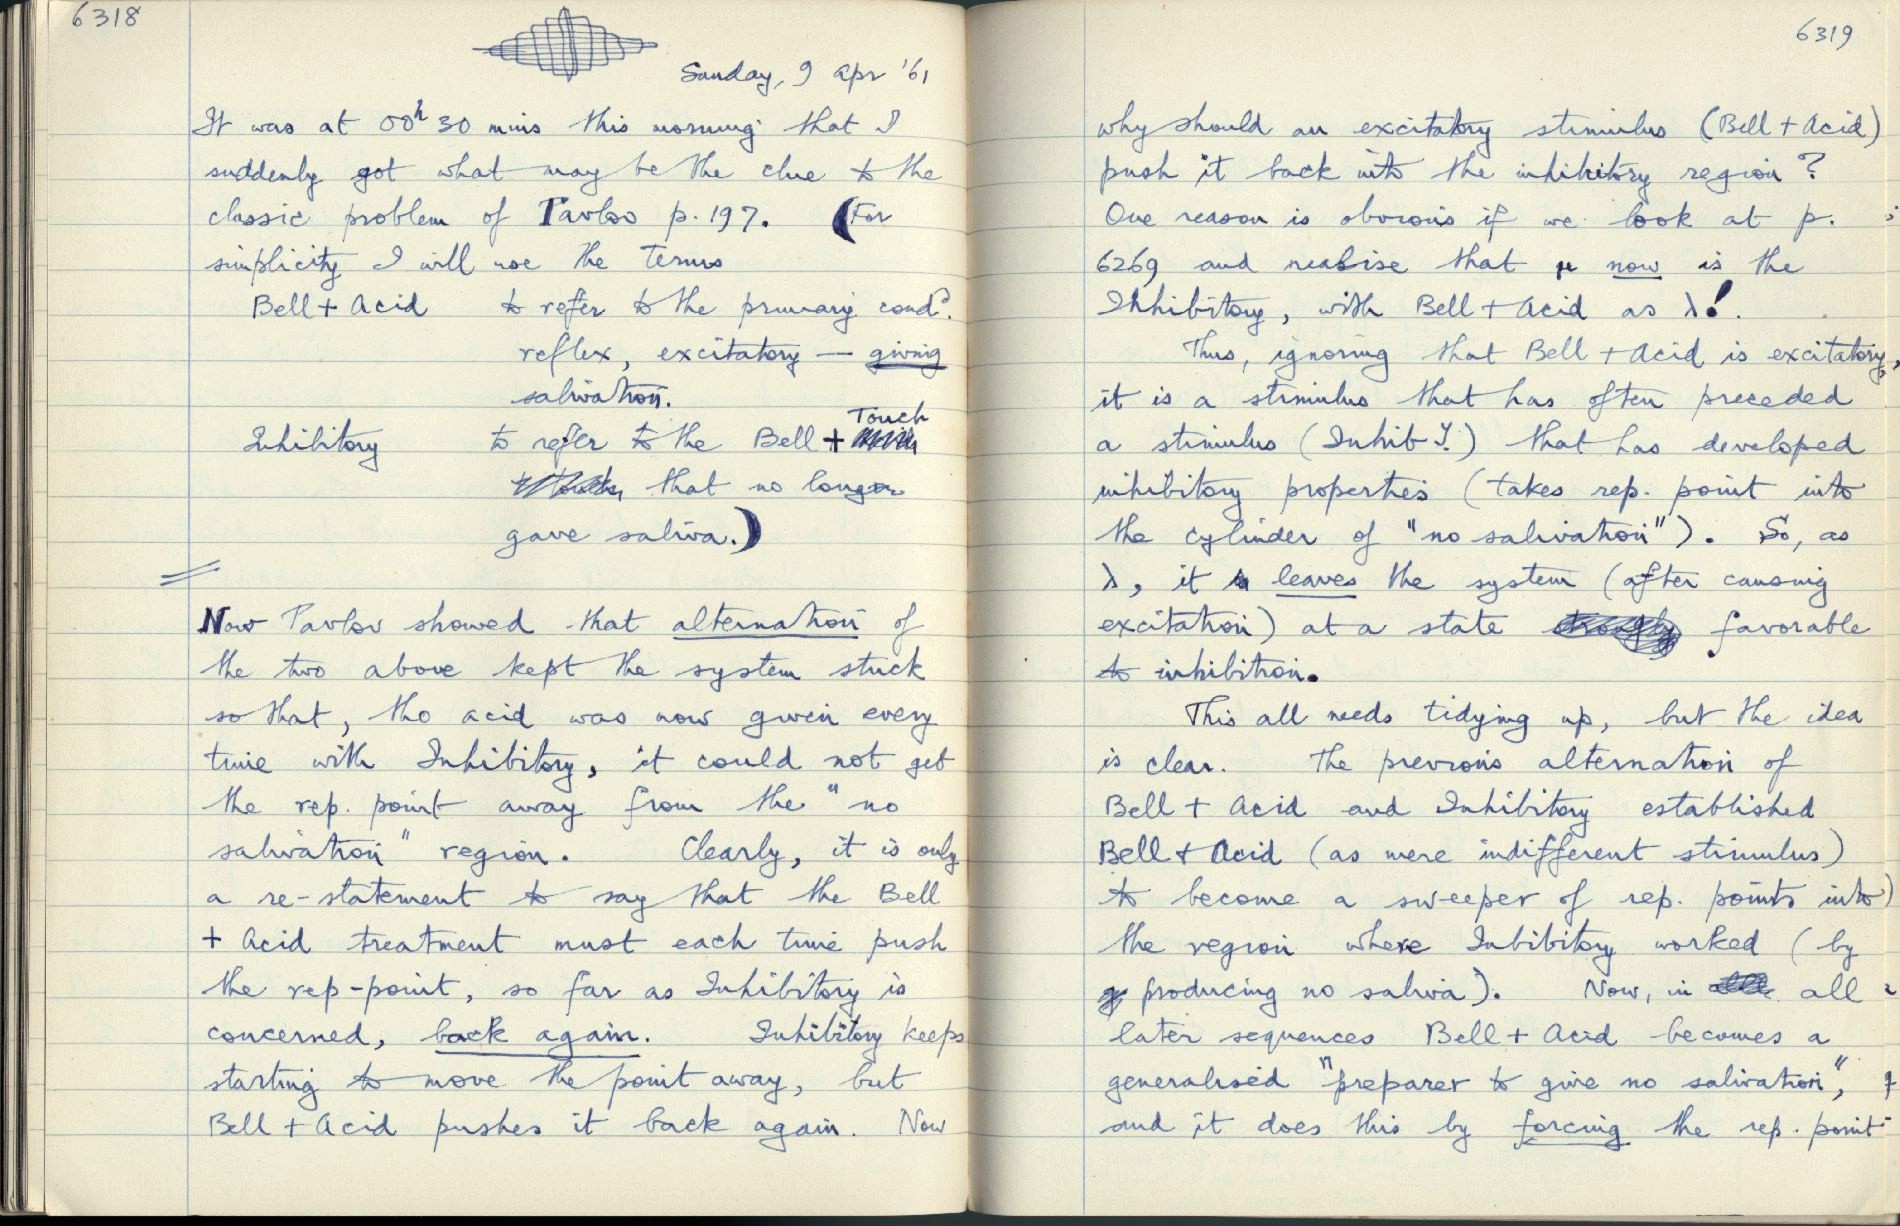 6318
Sunday, 9 Apr '61
It was at 00h 30 mins this morning that I
suddenly got what may be the clue to the
classic problem of Pavlov p. 197. (For
simplicity I will use the terms
Bell + Acid to refer to the primary cond?.
reflex, excitatory — giving
salivation.
Touch
Inhibitory to refer to the Bell +
that no longer
gave saliva.)
Now Pavlov showed that alternation of
the two above kept the system stuck
so that, tho acid was now given every
time with Inhibitory, it could not get
the rep. point away from the "no
salivation" region. Clearly, it is only
a re-statement to say that the Bell
+ Acid treatment must each time push
the rep-point, so far as Inhibitory is
concerned, back again. Inhibitory keeps
starting to move the point away, but
Bell + Acid pushes it back again. Now
6319
why should an excitatory stimulus (Bell + Acid)
push it back into the inhibitory region?
One reason is obvious if we look at p.
6269 and realise that μ now is the
Inhibitory, with Bell + Acid as λ!.
Thus, ignoring that Bell + Acid is excitatory,
it is a stimulus that has often preceded
a stimulus (Inhiby.) that has developed
inhibitory properties (takes rep. point into
the cylinder of "no salivation"). So, as
λ, it leaves the system (after causing
excitation) at a state favorable
to inhibition.
This all needs tidying up, but the idea
is clear. The previous alternation of
Bell + Acid and Inhibitory established
Bell + Acid (as mere indifferent stimulus)
to become a sweeper of rep. points into
the region where Inhibitory worked (by
producing no saliva). Now, in all
later sequences Bell + Acid becomes a
generalised "preparer to give no salivation",
and it does this by forcing the rep. point